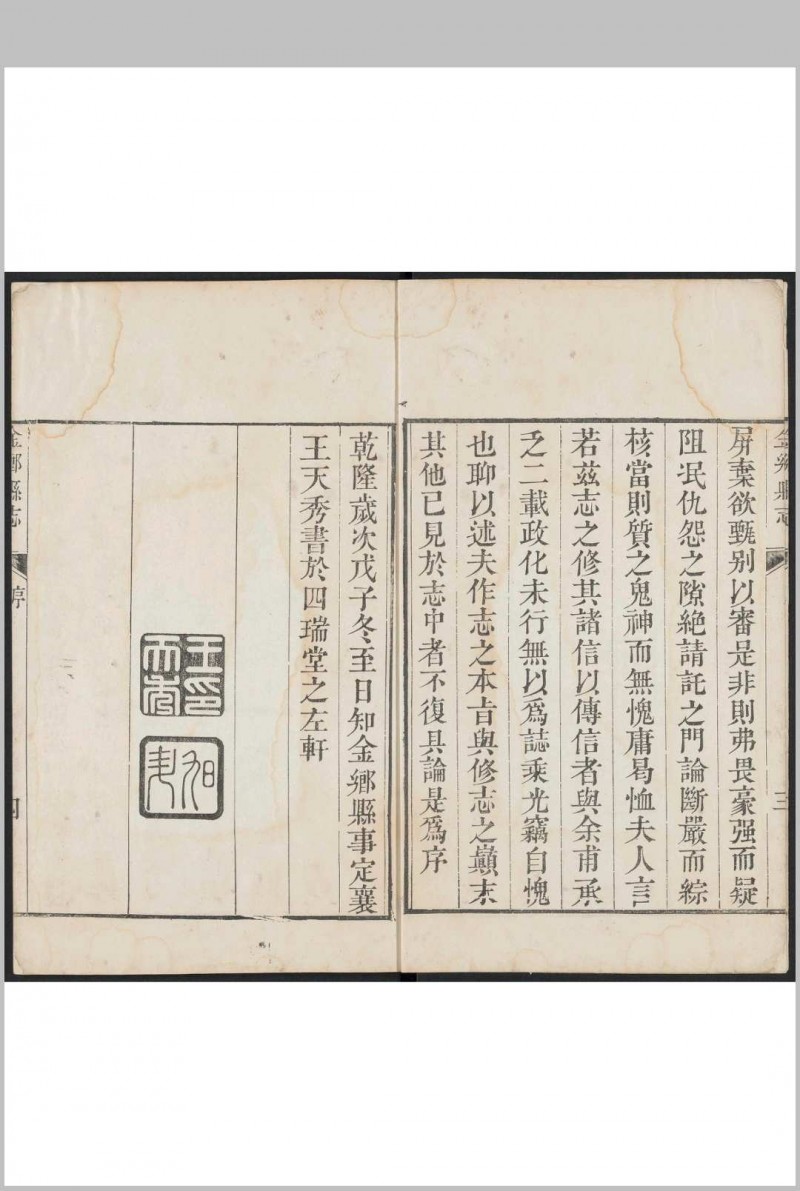 金鄉縣志
三
屏棄欲甄别以審是非則弗畏豪强而疑
阻泯仇怨之隙絶請託之門論斷嚴而綜
核當則質之鬼神而無愧庸曷恤夫人言
若兹志之修其諸信以傳信者與余甫承
乏二載政化未行無以爲誌乘光竊自愧
也聊以述夫作志之本㫖與修志之巔末
其他已見於志中者不復具論是爲序
乾隆歲次戊子冬至日知金鄉縣事定襄
王天秀書於四瑞堂之左軒
王印天秀
金鄉縣志
序
四